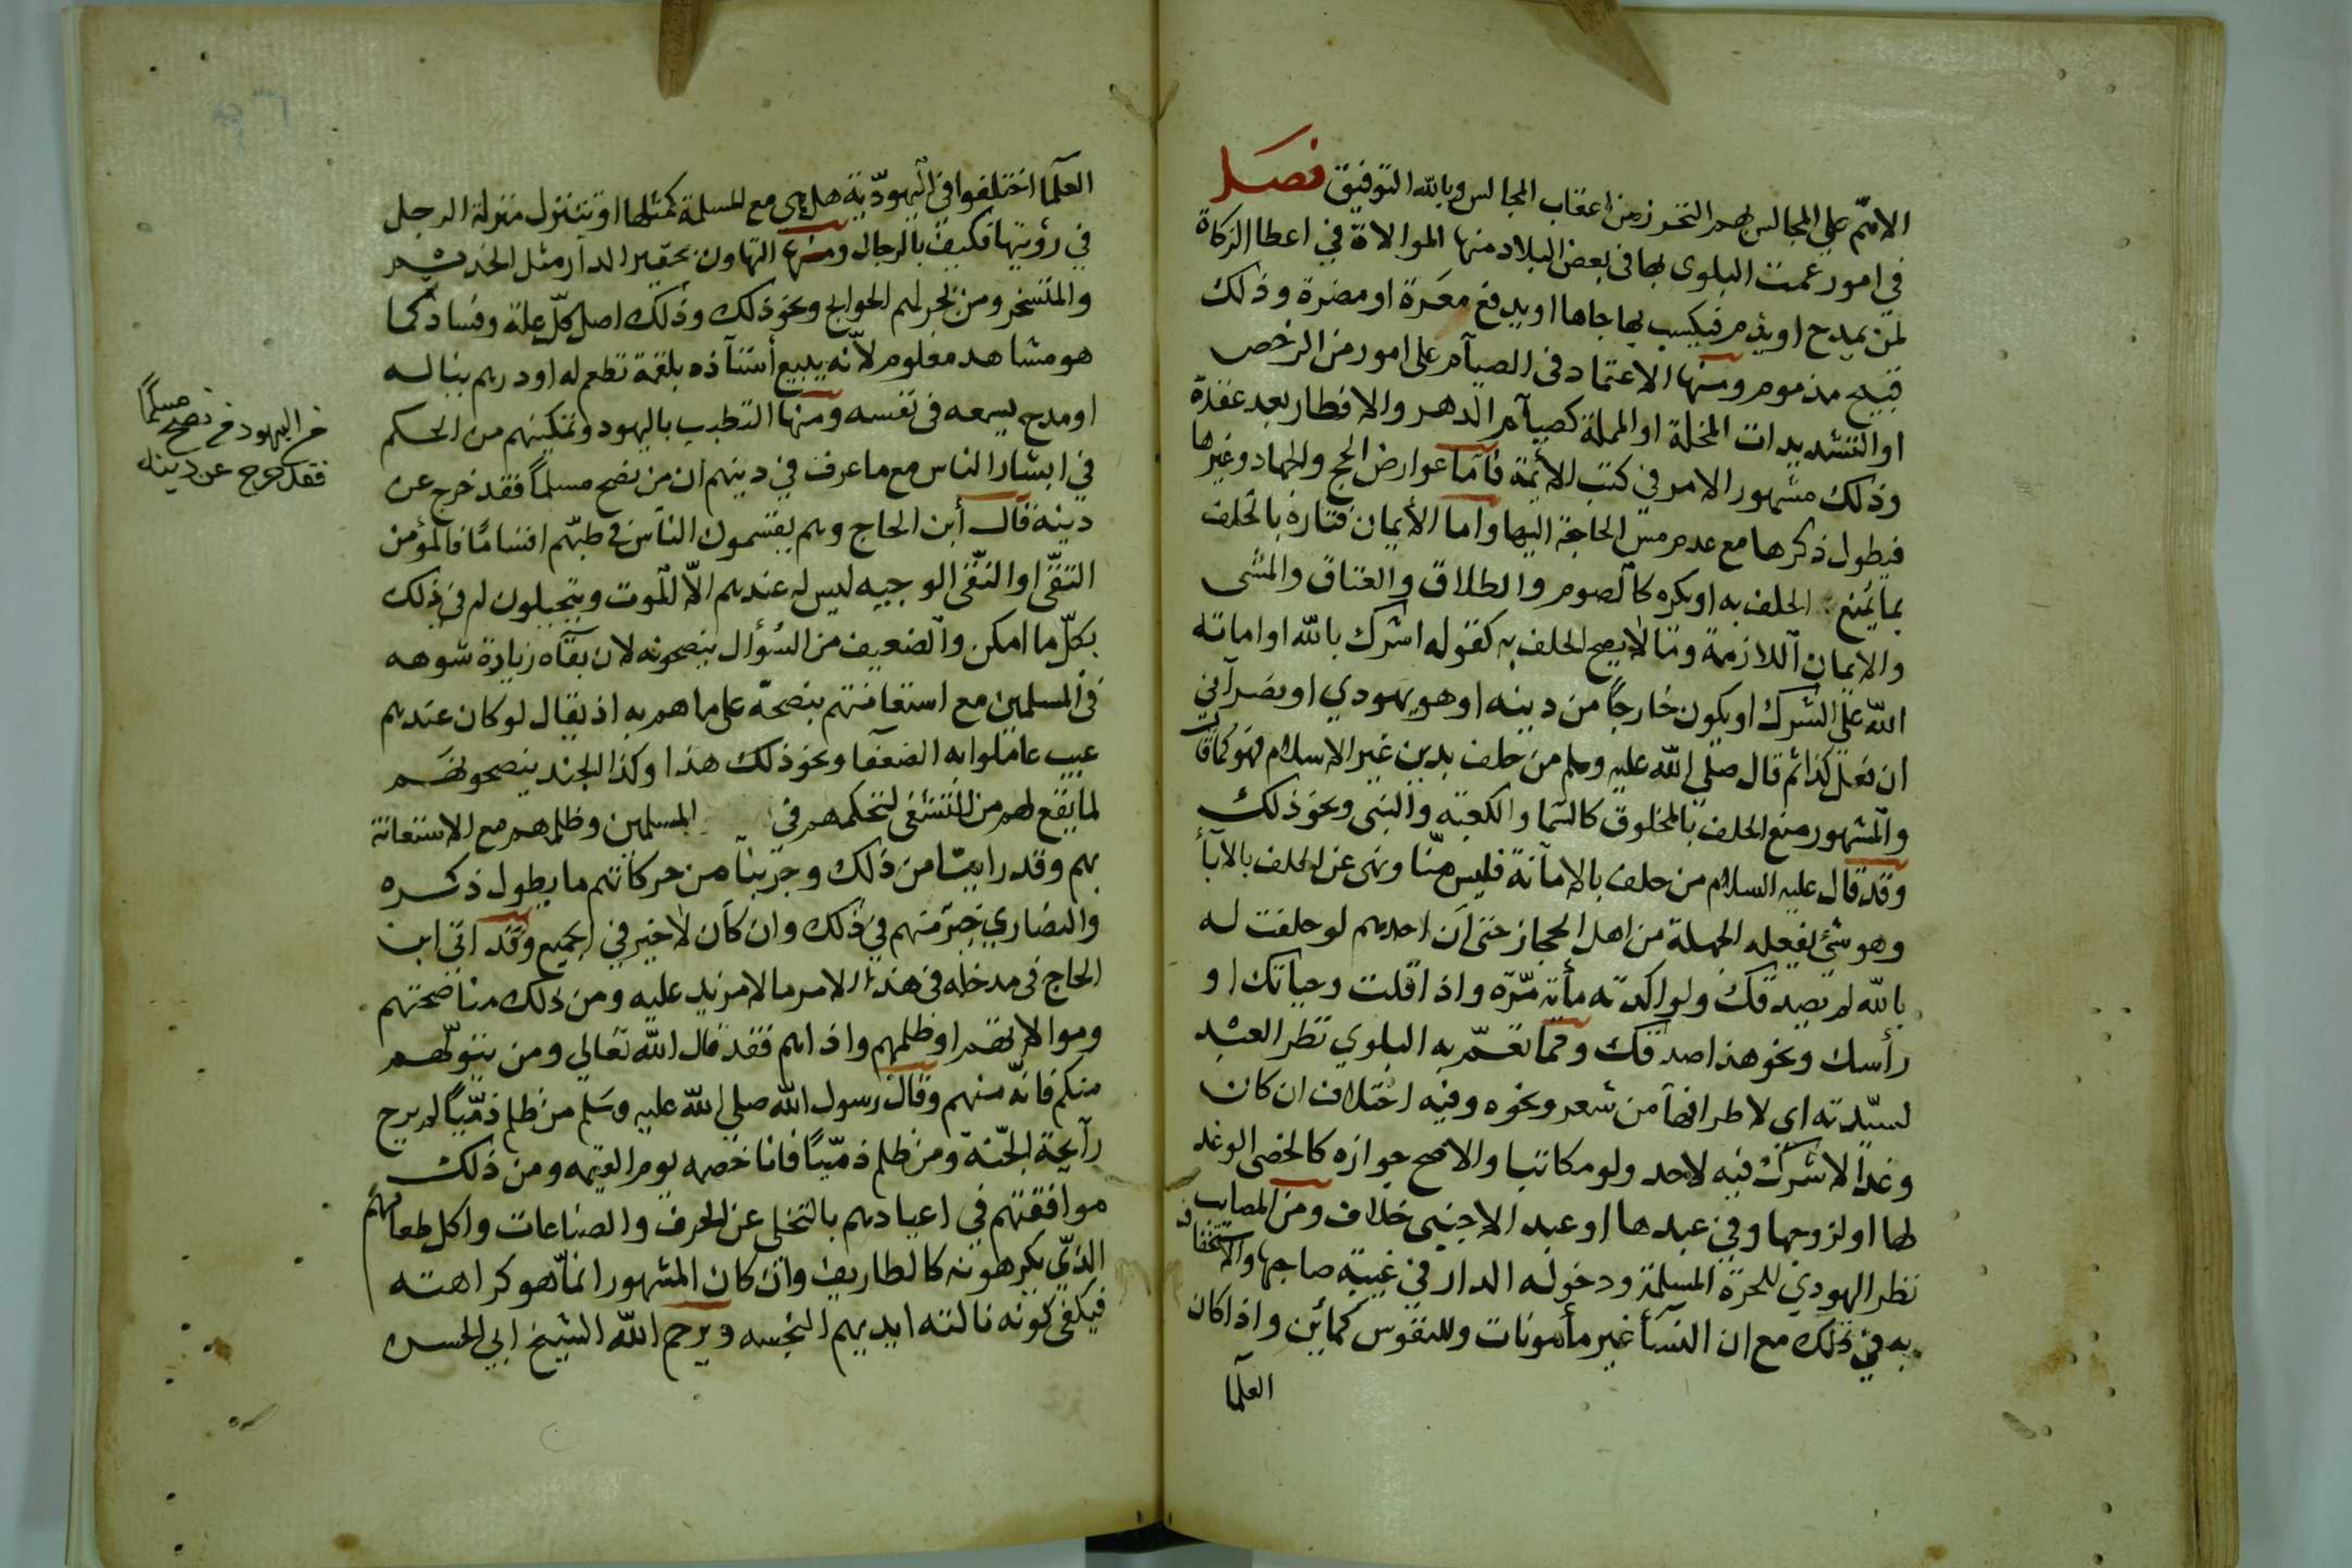 الاثم علي المجالس لهم التحرز من اعقاب المجالس وبالله التوفيق فصل
في امور عمت البلوى بها في بعض البلاد منها الموالاة في اعطا الزكاة
لمن يمدح او يذم فيكسب بها جاها او يدفع معرة او مضرة وذلك
قبيح مذموم ومنها الاعتماد في الصيام على امور من الرخص
او التشديدات المخلة او المملة كصيام الدهر والافطار بعد عقدة
وذلك مشهور الامر في كتب الأيمة فأما عوارض الحج والجهاد وغيرها
فيطول ذكرها مع عدم مس الحاجة اليها واما الأيمان فتارة بالحلف
بما يمنع الحلف به او يكره كالصوم والطلاق والعتاق والمشى
والايمان اللازمة وتا لا يصح الحلف به كقوله اشرك بالله او اماته
الله على الشرك او يكون خارجاً من دينه او هو يهودي او نصرآني
ان فعل كذا ثم قال صلى الله عليه وسلم من حلف بدين غير الاسلام فهو كما قال
والمشهور منع الحلف بالمخلوق كالسما والكعبة والنبى ونحو ذلك
وقد قال عليه السلام من حلف بالامآنة فليس منّا ونهى عن الحلف بالابأ
وهو شئ يفعله الجهلة من اهل الحجاز حتى أن احدهم لو حلفت له
بالله لم يصدقك ولو اكدته مأية مرّة واذا قلت وحياتك او
رأسك ونحو هذا صدقك ومما تعمّ به البلوي نظر العبد
لسيّدته اي لاطرافها من شعر ونحوه وفيه اختلاف ان كان
وغداً لا شرك فيه لاحد ولو مكاتبا والاصح جوازه كالخصى الوغد
لها او لزوجها وفي عبدها او عبد الاجنبى خلاف ومن المصايب
نظر اليهودي للحرة المسلمة ودخوله الدار في غيبة صاحبها والاستخفاف
به في ذلك مع ان النسأ غير مأمونات وللنفوس كمأين واذا كان
العلما
العلما اختلفوا في اليهوديّة هل هي مع المسلمة كمثلها او تتنزل منزلة الرجل
في رؤيتها فكيف بالرجال ومنها التهاون بحقير الدار مثل الخديم
والمتسخر ومن يجر لهم الحوايج ونحو ذلك وذلك اصل كلّ علة وفساد كما
هو مشاهد معلوم لأنّه يبيع أستآذه بلقمة تطعم له او درهم يناله
او مدح يسمعه في نفسه ومنها التطبب باليهود وتمكينهم من الحكم
في ابشار الناس مع ما عرف في دينهم ان من نصح مسلماً فقد خرج عن
دينه قال أبن الحاج وهم يقسمون النّاس في طبّهم اقساماً فالمؤمن
التقّى او النقّى الوجيه ليس له عندهم الاّ للموت ويتحيلون له في ذلك
بكلّ ما امكن والضعيف من السُؤال ينصحونه لان بقآه زيادة شوهه
في المسلمين مع استعانتهم بنصحه على ما هم به اذ يقال لو كان عندهم
عيب عاملوا به الضعفا ونحو ذلك هذا وكذا الجند ينصحونهم
لما يقع لهم من التشفى لتحكمهم في المسلمين وظلمهم مع الاستعانة
بهم وقد راينا من ذلك وجرّبنا من حركاتهم ما يطول ذكره
والنصاري خير منهم في ذلك وان كان لا خير في الجميع وقد اتى ابن
الحاج في مدخله في هذا الامر ما لا مزيد عليه ومن ذلك مناصحتهم
وموالاتهم او ظلمهم واذاهم فقد قال الله تعالي ومن يتولّهم
منكم فانّه منهم وقال رسول الله صلى الله عليه وسَلم من ظلم ذمّيّاً لم يرح
رآيحة الجنّة ومن ظلم ذمّيّاً فانا خصمه يوم القيمه ومن ذلك
موافقتهم في اعيادهم بالتخلى عن الحرف والصناعات واكل طعامهم
الذي يكرهونه كالطاريف وان كان المشهور انمّا هو كراهته
فيكفى كونه نالته ايديهم النجسه ويرحم الله الشيخ ابي الحسن
من اليهود من نصح مسلماً
فقد خرج عن دينه